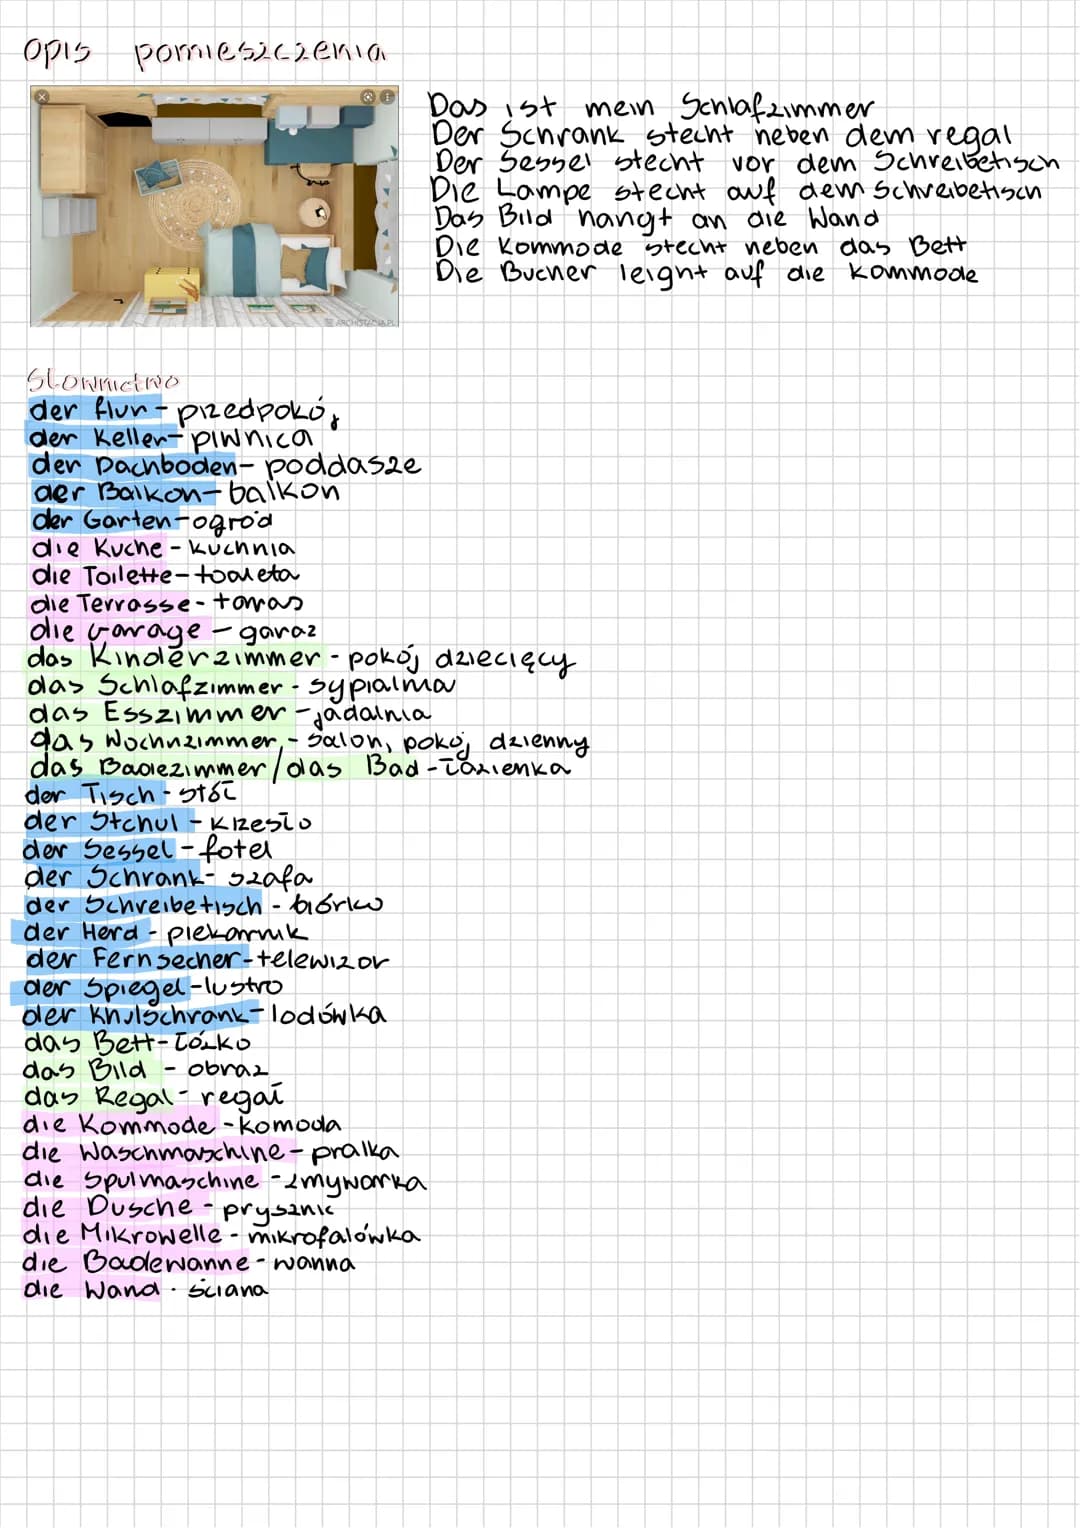 opis pomieszczenia
Das ist mein Schlafzimmer
Der Schrank stecht neben dem regal
Der Sessel stecht vor dem Schreibetisch
Die Lampe stecht auf dem Schreibetisch
Das Bild hangt an die Wand
Die Kommode stecht neben das Bett
Die Bucher leignt auf die Kommode
ARCHISTACJA.PL
Słownictwo
der flur - przedpokój
der Keller - piwnica
der Dachboden - poddasze
der Balkon - balkon
der Garten - ogród
die Kuche - kuchnia
die Toilette - toaleta
die Terrasse - taras
die Garage - garaż
das Kinderzimmer - pokój dziecięcy
das Schlafzimmer - sypialnia
das Esszimmer - jadalnia
das Wochnzimmer - salon, pokój dzienny
das Badezimmer/das Bad - łazienka
der Tisch - stół
der Stchul - krzesło
der Sessel - fotel
der Schrank - szafa
der Schreibetisch - biórko
der Herd - piekarnik
der Fernsecher - telewizor
der Spiegel - lustro
der Khulschrank - lodówka
das Bett - łóżko
das Bild - obraz
das Regal - regał
die Kommode - komoda
die Waschmaschine - pralka
die Spulmaschine - zmywarka
die Dusche - prysznic
die Mikrowelle - mikrofalówka
die Badewanne - wanna
die Wand - ściana